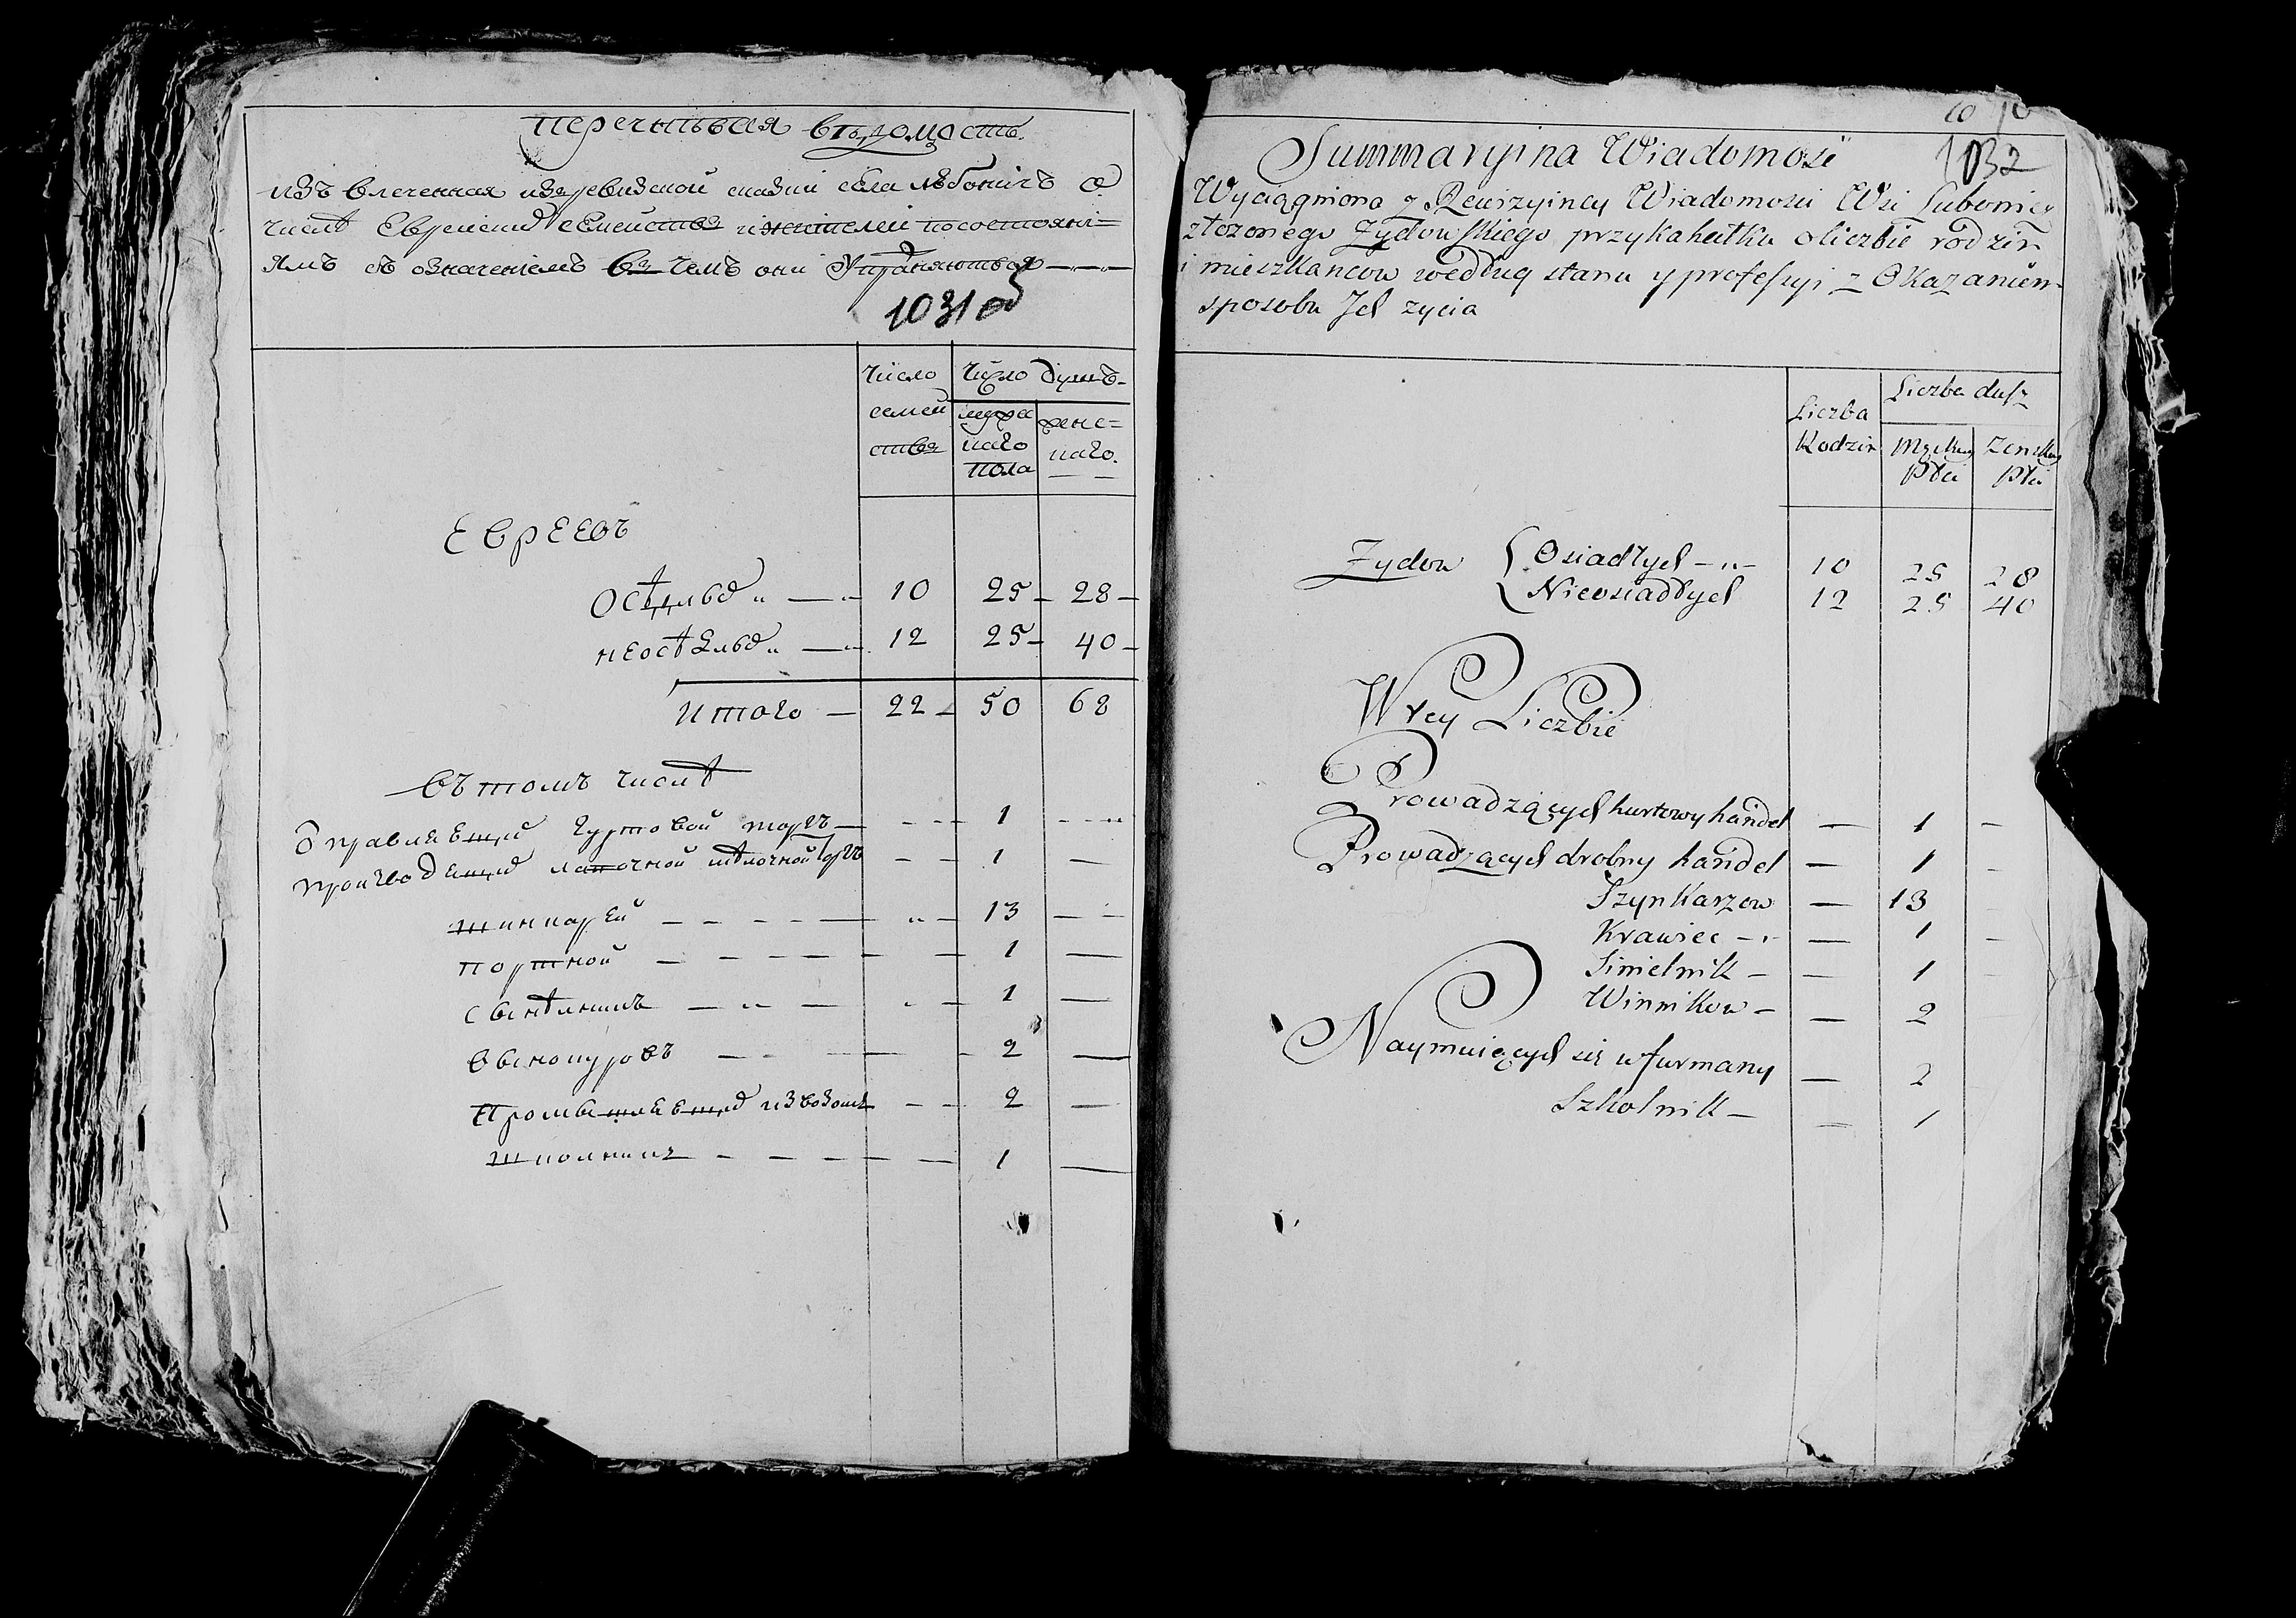 перечньвая вѣдомость.
изъ влеченная изъ ревизской сказки села Любоничъ о
числѣ Еврейскихъ семействъ и жителей по состояни=
ямъ съ означениемъ въ чемъ они упражняются
1031 об
число семей ствъ
число душъ
мужес каго пола
женс= каго.
Евреевъ
осѣдлыхъ 10 25 28
неосѣдлыхъ 12 25 40
Итого 22 50 68
въ томъ числѣ
Оправляющихъ гуртовой торгъ 1
производящихъ лавочной мѣлочной торгъ 1
шинкарей 13
портной 1
1
винокуровъ 2
Промышляющихъ извозомъ 2
школникъ 1
10
1032
Summaryina Wiadomość
Wyciągniona z Rewizyiney Wiadomości Wsi Lubonicz
złożonego Żydowskiego przykahałku o liczbie rodzin
i mieszkancow według stanu y professyi z Okazaniem
sposobu Jch zycia
Liczba Rodzin
Liczba dusz
Męskiey Płci
Zenskiey Płci
Zydow { Osiadłych 10 25 28
{ Nieosiadłych 12 25 40
W tey Liczbie
Prowadzących hurtowy handel — 1 —
Prowadzących drobny handel — 1 —
Szynkarzow — 13
Krawiec — 1 —
1
Winnikow — 2
Naymuiących się w furmany — 2
Szkolnik — 1